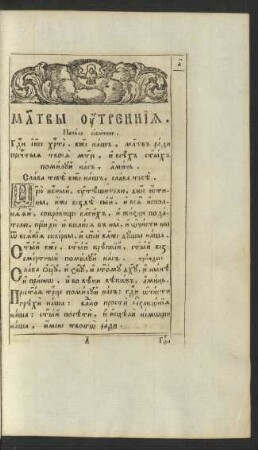 МЛ҃ТВЫ ОУ҆ТРЕННїѦ.
Начало обычное.
Гд҇и і҆с҃е хр҇те, бж҃е нашъ, мл҃твъ ради
пречⷭ҇тыѧ твоеѧ мт҃ри, и҆ всѣхъ ст҃ыхъ
помилꙋй насъ, а҆минь.
Слава тебѣ бж҃е нашъ, слава тебѣ.
Цр҃ю нб҇ный, оу҆тѣшителю, дш҃е и҆сти-
ны, и҆же вездѣ сый, и҆ всѧ и҆сполнѧ-
ѧй, сокровище бл҃гихъ, и҆ жизни пода-
телю, прїиди и҆ вселисѧ въ ны, и҆ ѡ҆чисти ны
ѿ всѧкїѧ скверны, и҆ сп҃си бл҃же дꙋшы нашѧ.
Ст҃ый бж҃е, ст҃ый крѣпкїй, ст҃ый без-
смертный помилꙋй насъ. трижды
Слава ѻ҆ц҃ꙋ, и҆ сн҃ꙋ, и҆ ст҃омꙋ дх҃ꙋ, и҆ нынѣ
и҆ приснѡ, и҆ во вѣки вѣкѡвъ, а҆минь.
Прест҃аѧ трⷪ҇це помилꙋй насъ: гд҇и ѡ҆чисти
грѣхи нашѧ: влⷣко прости беззакѡнїѧ
наша: ст҃ый посѣти, и҆ и҆сцѣли немѡщи
нашѧ, и҆мене твоегѡ ради.
а
Гд҇и